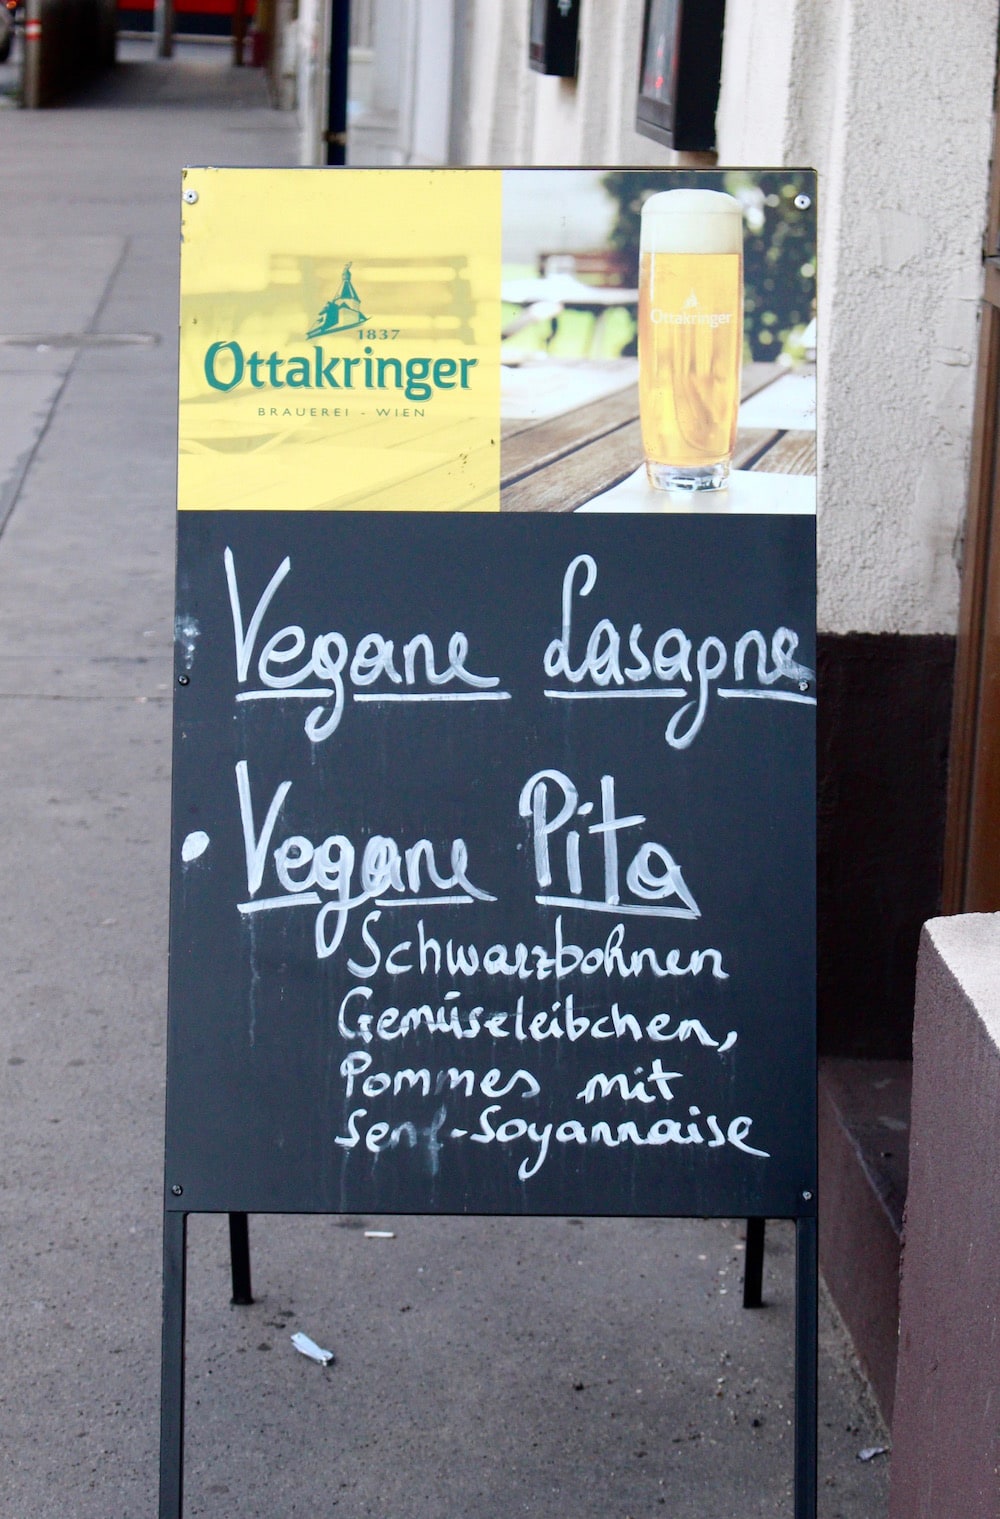 1837
Ottakringer
BRAUEREI - WIEN
Ottakringer
Vegane Lasagne
• Vegane Pita
Schwarzbohnen
Gemüseleibchen,
Pommes mit
Senf-Soyannaise